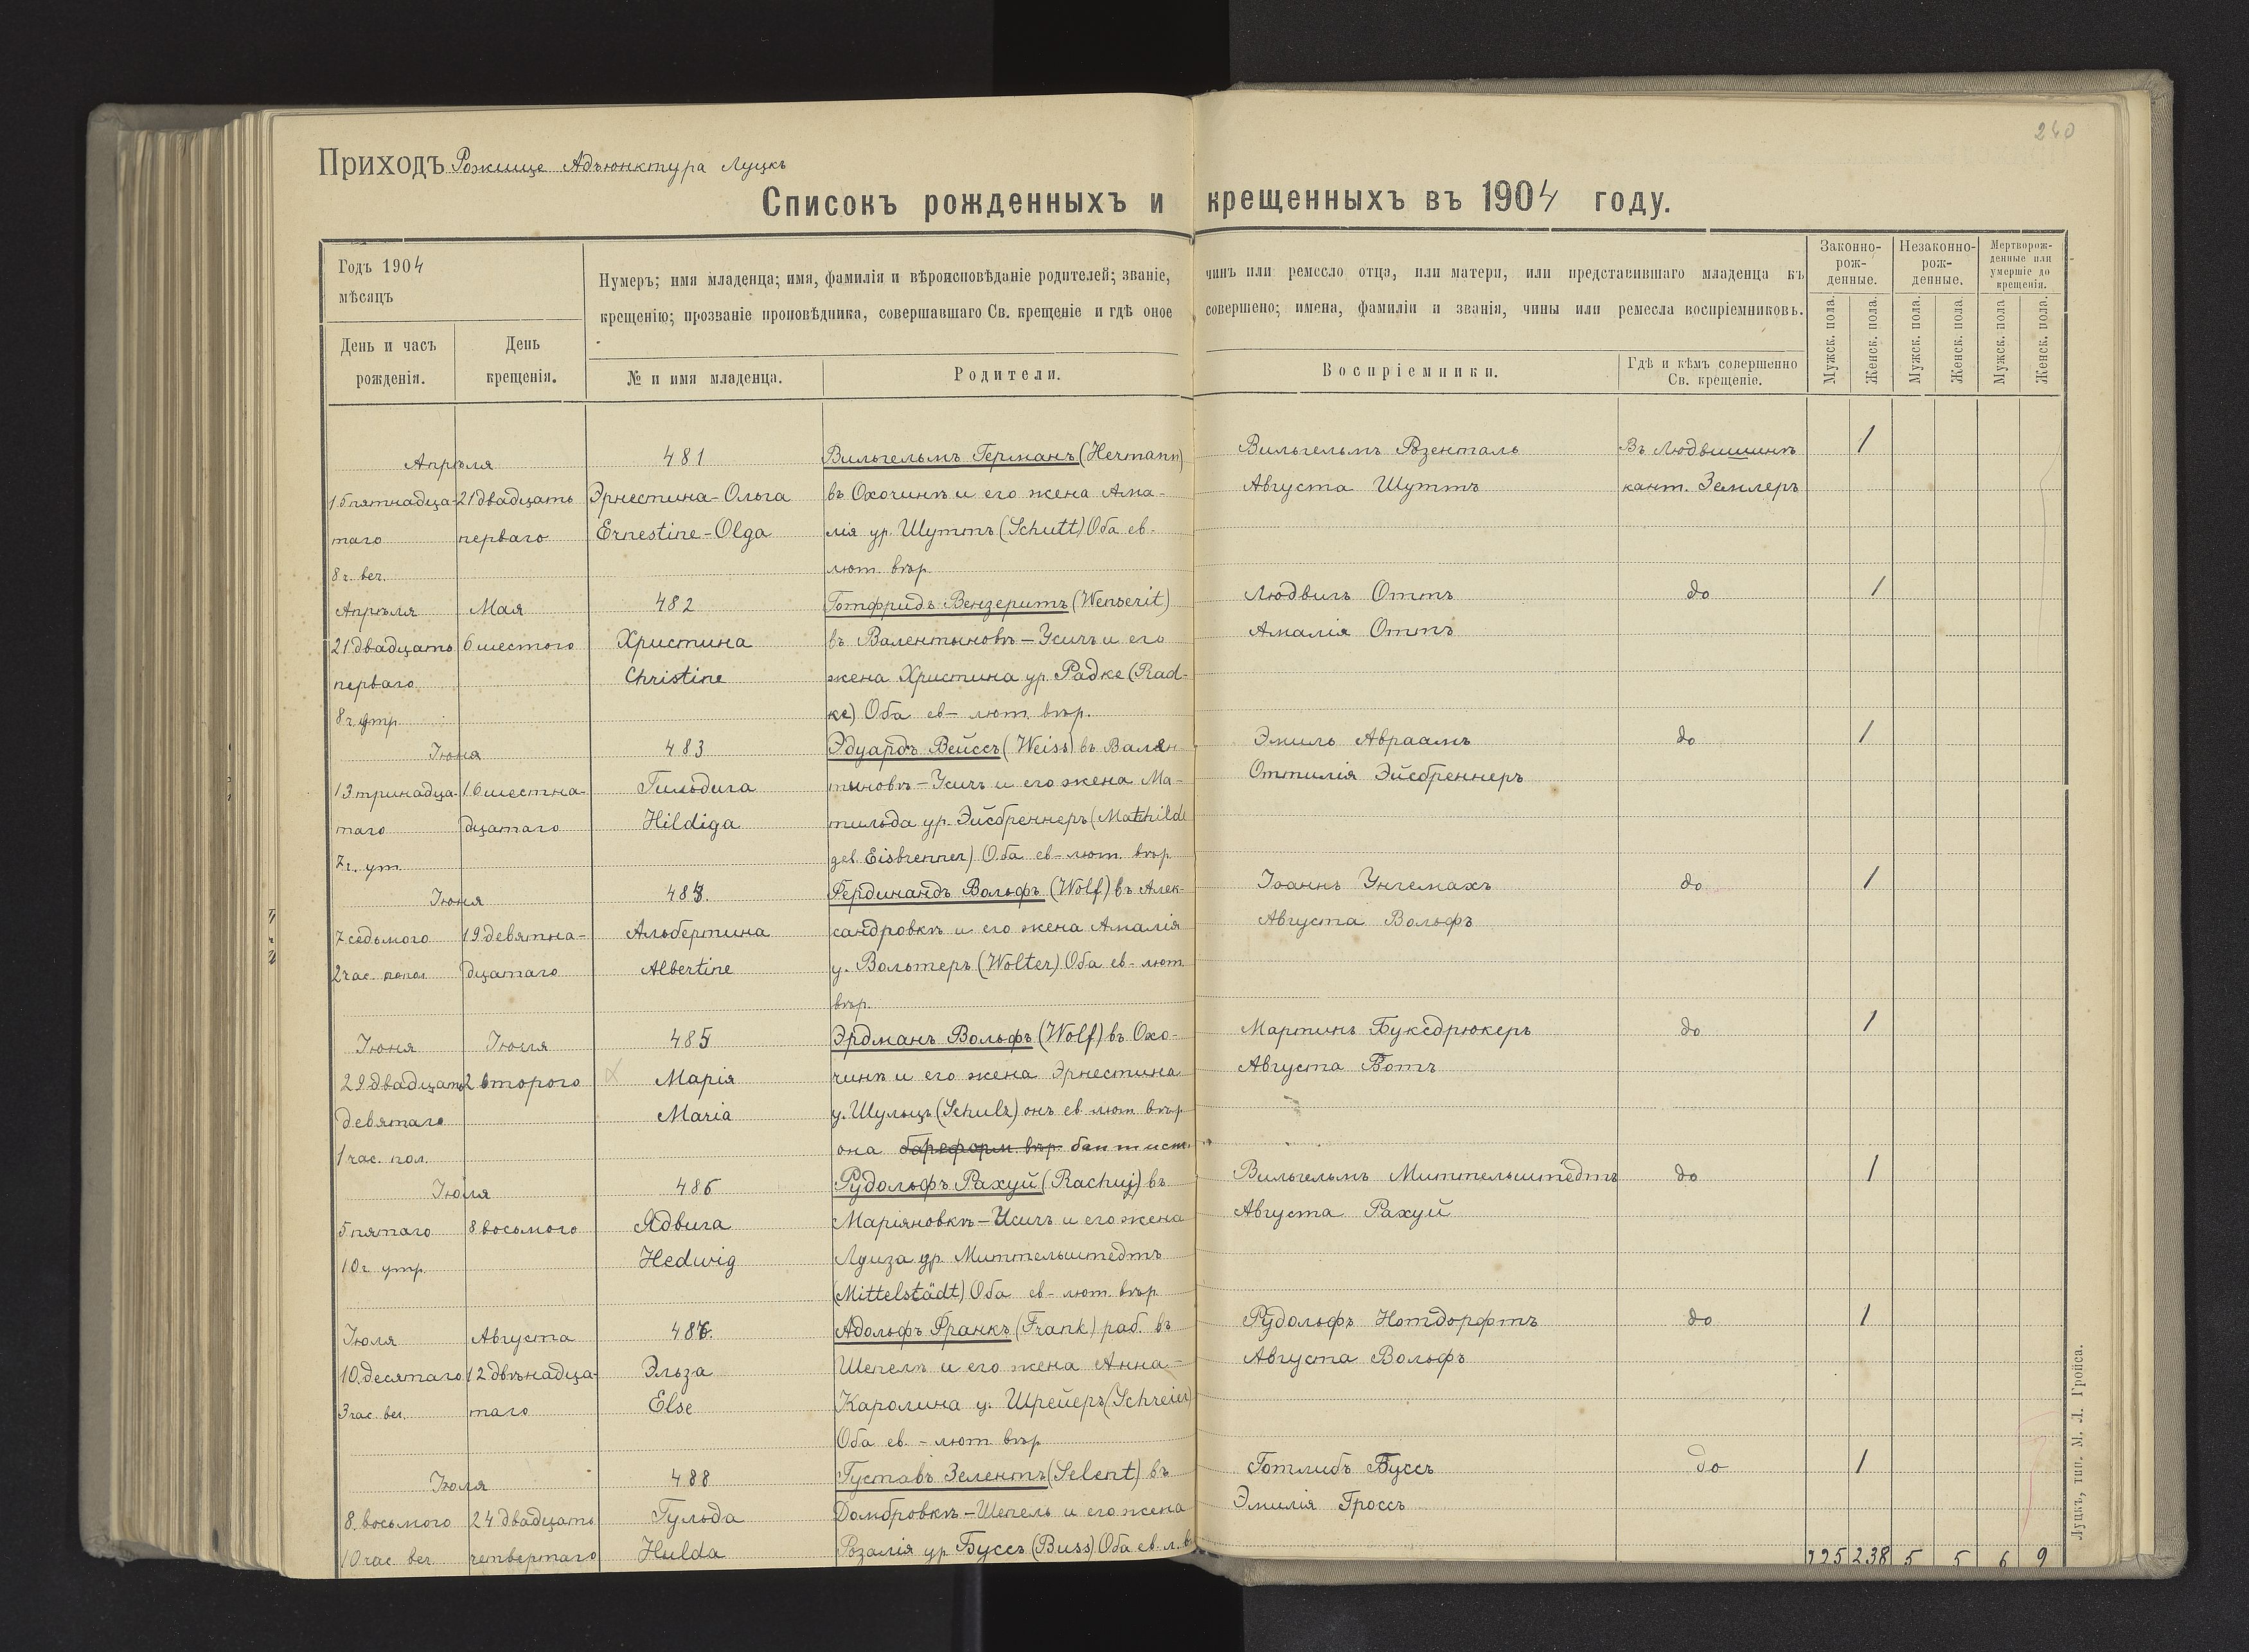 240
Приходъ Рожище Адъюнктура Луцкъ
Списокъ рожденныхъ и крещенныхъ въ 1904 году.
Годъ 1904
мѣсяцъ
День и часъ
рожденія.
День
крещенія.
Нумеръ; имя младенца; имя, фамилія и вѣроисповѣданіе родителей; званіе, чинъ или ремесло отца, или матери, или представившаго младенца къ
крещенію; прозваніе проповѣдника, совершавшаго Св. крещеніе и гдѣ оное совершено; имена, фамиліи и званія, чины или ремесла воспріемниковъ.
№ и имя младенца.
Родители.
Воспріемники.
Гдѣ и кѣмъ совершенно
Св. крещеніе.
Законно-
рож-
денные.
Незаконно-
рож-
денные.
Мертворож-
денные или
умершіе до
крещенія.
Мужск. пола.
Женск. пола.
Мужск. пола.
Женск. пола.
Мужск. пола
Женск. пола.
Апрѣля
15 пятнадца-
таго
8 ч. веч.
21 двадцать
перваго
481
Эрнестина-Ольга
Ernestine-Olga
Вильгельмъ Германъ (Hermann)
въ Охочинѣ и его жена Ама-
лія ур. Шуттъ (Schutt) Оба ев-
лют. вѣр.
Вильгельмъ Розенталь
Августа Шуттъ
Въ Людвишинѣ
кант. Землеръ
1
Апрѣля
21 двадцать
перваго
8 ч. утр.
Мая
6 шестого
482
Христина
Christine
Готфридъ Вензеритъ (Wenserit)
въ Валентыновѣ-Усичъ и его
жена Христина ур. Радке (Rad-
ke) Оба ев-лют. вѣр.
Людвигъ Оттъ
Амалія Оттъ
до
1
Іюня
13 тринадца-
таго
7 ч. ут.
16 шестна-
дцатаго
483
Гильдига
Hildiga
Эдуардъ Вейссъ (Weiss) въ Вален
тыновѣ-Усичъ и его жена Ма-
тильда ур. Эйсбреннеръ (Mathilde
geb. Eisbrenner) Оба ев-лют. вѣр.
Эмиль Авраамъ
Оттилія Эйсбреннеръ
до
1
Іюня
7 седьмого
2 час. попол.
19 девятна-
дцатаго
484.
Альбертина
Albertine
Фердинандъ Вольфъ (Wolf) въ Алек-
сандровкѣ и его жена Амалія
у. Вольтеръ (Wolter) Оба ев-лют
вѣр.
Іоаннъ Унгемахъ
Августа Вольфъ
до
1
Іюня
29 двадцать
девятаго
1 час. пол.
Іюля
2 второго
485
Марія
Maria
Эрдманъ Вольфъ (Wolf) въ Охо-
чинѣ и его жена Эрнестина
у. Шульцъ (Schulz) онъ ев. лют. вѣр
она баптист.
Мартинъ Буксдрюкеръ
Августа Ботъ
до
1
Іюля
5 пятаго
10 ч. утр.
8 восьмого
486
Ядвига
Hedwig
Рудольфъ Рахуй (Rachuj) въ
Маріяновкѣ-Усичъ и его жена
Луиза ур. Миттельштедтъ
(Mittelstädt) Оба ев-лют. вѣр
Вильгельмъ Миттельштедтъ
Августа Рахуй
до
1
Іюля
10. десятаго
3 час. веч.
Августа
12 двѣнадца-
таго
487.
Эльза
Else
Адольфъ Франкъ (Frank) раб. въ
Шепелѣ и его жена Анна-
Каролина у. Шрейеръ (Schreier)
Оба ев.-лют. вѣр
Рудольфъ Нотдорфтъ
Августа Вольфъ
до
1
Іюля
8. восьмого
10 час. веч.
24 двадцать
четвертаго
488
Гульда
Hulda
Густавъ Зелентъ (Selent) въ
Домбровкѣ-Шепель и его жена
Розалія ур. Буссъ (Buss) Оба ев. л. в
Готлибъ Буссъ
Эмилія Гроссъ
до
1
225 238 5 5 6 9
Луцкъ, тип. М. Л. Гройса.